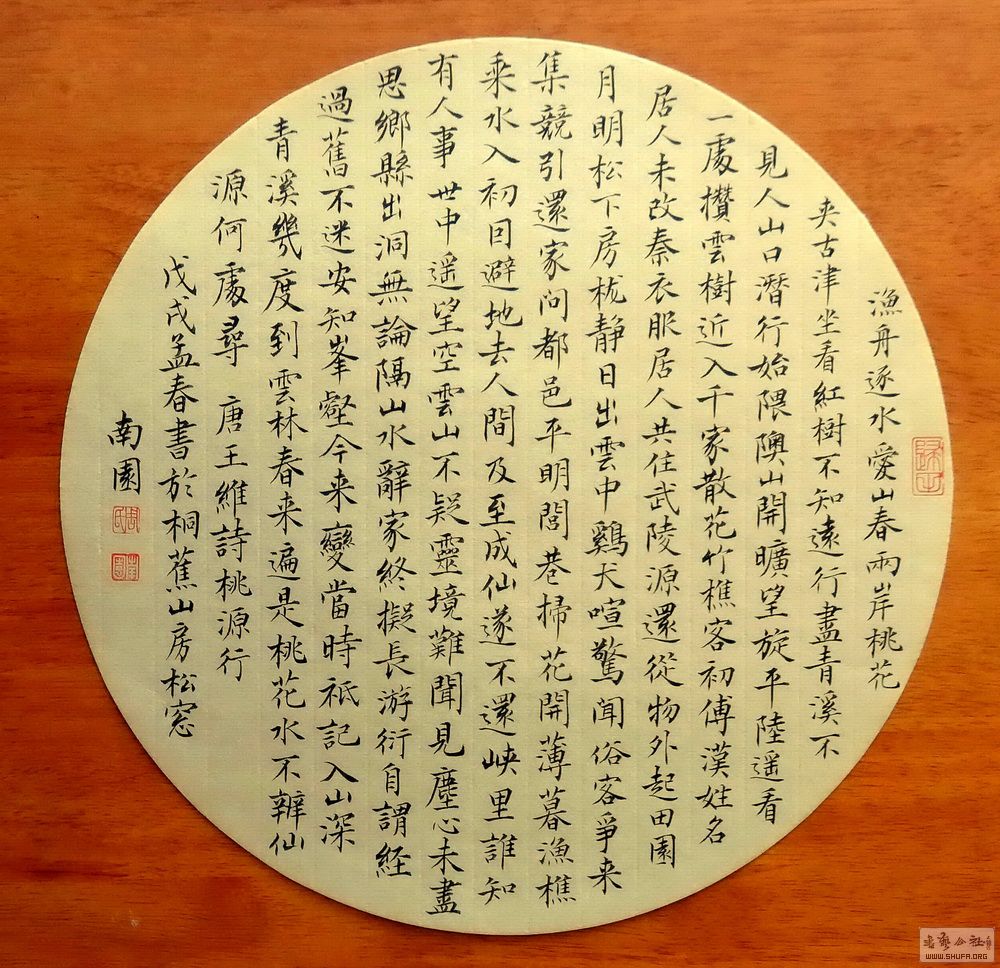 漁舟逐水愛山春兩岸桃花
夾古津坐看紅樹不知遠行盡青溪不
見人山口潛行始隈隩山開曠望旋平陸遥看
一處攢雲樹近入千家散花竹樵客初傳漢姓名
居人未改秦衣服居人共住武陵源還從物外起田園
月明松下房櫳静日出雲中鷄犬喧驚闻俗客爭来
集競引還家问都邑平明閭巷掃花開薄暮漁樵
乘水入初因避地去人間及至成仙遂不還峡里誰知
有人事世中遥望空雲山不疑靈境難聞見塵心未盡
思鄉縣出洞無論隔山水辭家終擬長游衍自謂経
過舊不迷安知峯壑今来變當時衹記入山深
青溪幾度到雲林春来遍是桃花水不辨仙
源何處尋 唐王維詩桃源行
戊戌孟春書於桐蕉山房松窓
南園
书艺公社
WWW.SHUFA.ORG